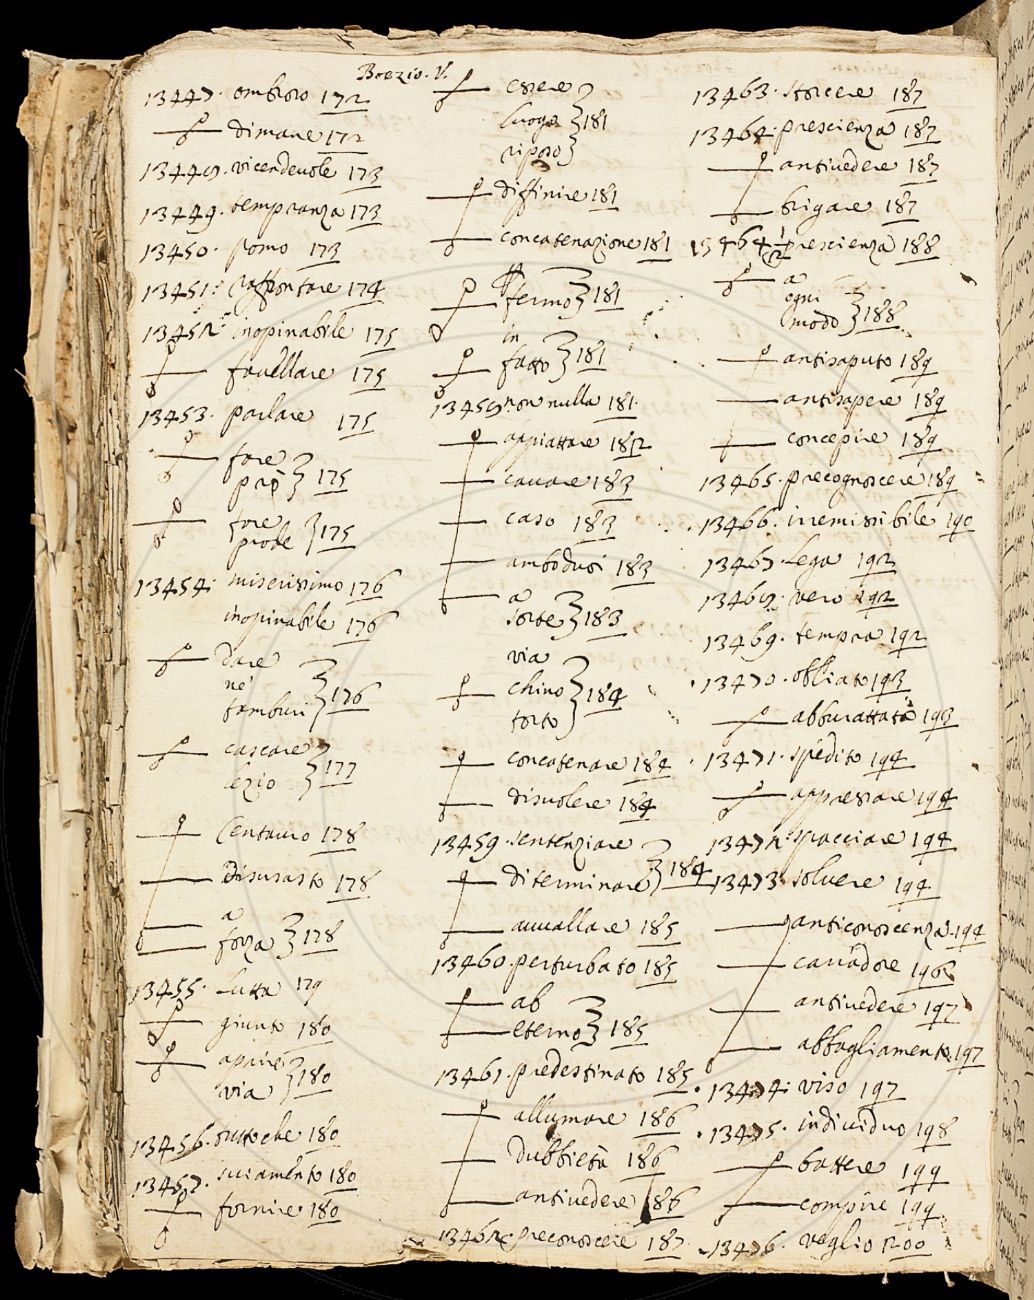 Boezio. V.
13447. ombroso 172
dimane 172
13448. vicendevole 173
13449. temperanza 173
13450. pomo 173
13451. raffrontare 174
13452. inopinabile 175
favellare 175
13453. parlare 175
fare
prò 175
fare
prode 175
13454. miserissimo 176
inopinabile 176
dare
ne'
tamburi 176
cascare
lezio 177
Centauro 178
Disusato 178
a
forza 178
13455. lutta 179
giunto 180
aprire
via 180
13456. tuttoche 180
13457. sviamento 180
fornire. 180
essere
luogo
riposo 181
diffinire 181
concatenazione 181
fermo 181
in
fatto 181
13458. non nulla 181.
appiattare 182
cavare 183
caso 183
ambodusi 183
a
sorte 183
via
china
torto 184
concatenare 184
disvolere 184
13459. sentenziare
diterminare 184
avvallare 185
13460. perturbato 185
ab
eterno 185
13461. predestinato 185
allumare 186
dubbietà 186
antivedere 186
13462. preconoscere 187
13463. storcere 187
13464. prescienza 187
antivedere 187
brigare 187
13464 1/2 prescienza 188
a
ogni
modo 188
antisaputo 189
antisapere 189
concepire 189
13465. precognoscere 189
13466. inremissibile 190
13467. lega 192
13468. vero 192
13469. tempra 192
13470. obliato 193
abburattata 193
13471. spedito 194
appressare 194
13472. spacciare 194
13473. solvere 194
anticonoscenza. 194
cavadore 196
antivedere 197
abbagliamento. 197
13474. viso 197
13475. individuo 198
battere 199
compire 199
13476. veglio 200